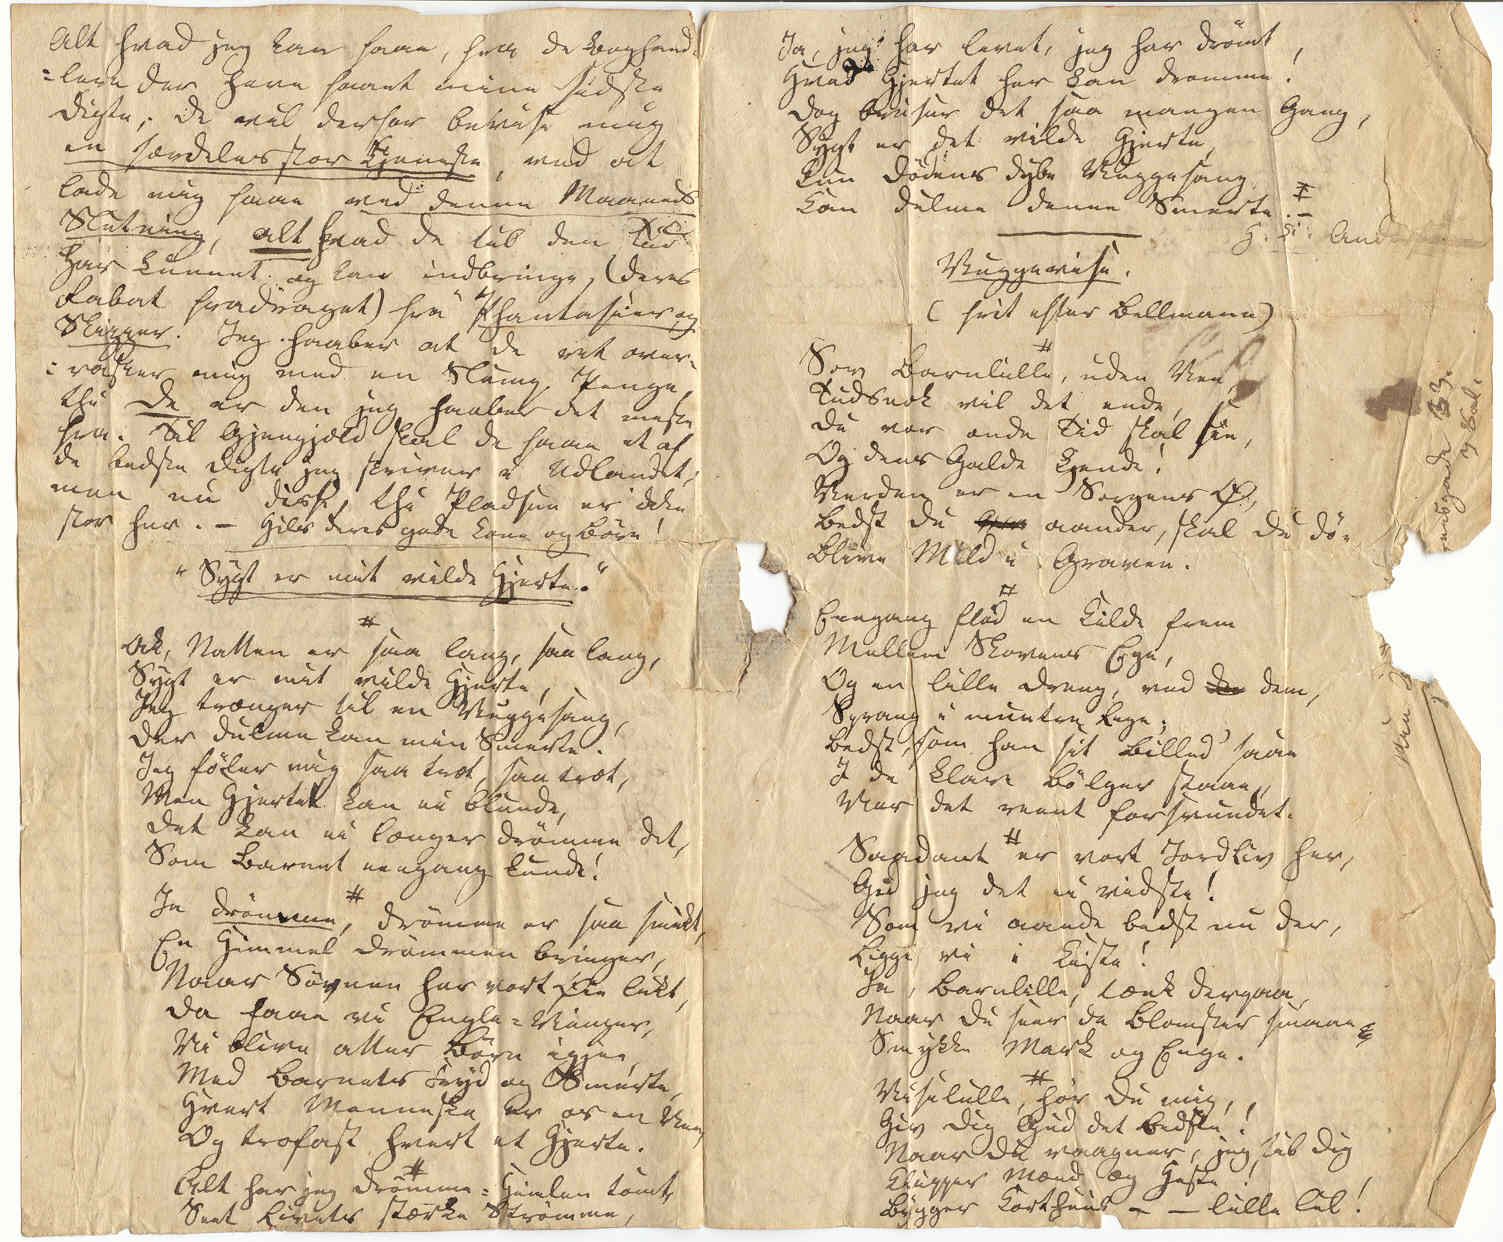 Alt hvad jeg kan faae, fra de Boghand-
=lere der have faaet mine sidste
Digte; De vil derfor bevise mig
en særdeles stor Tjeneste, ved at
lade mig faae ved denne Maaneds
Slutning, alt hvad De til den Tid
har kunnet og kan indbringe, (Deres
Rabat fradraget) fra Phantasier og
Skizzer. Jeg haaber at De ret over-
:rasker mig med en Slump Penge,
thi De er den jeg haaber det meste
fra. Til Gjengjæld skal De faae et af
de bedste Digte jeg skriver i Udlandet;
men nu disse, thi Pladsen er ikke
stor her. — Hils Deres gode Kone og Børn!
"Sygt er mit vilde Hjerte."
#
Ak, Natten er saa lang, saa lang,
Sygt er mit vilde Hjerte,
Jeg trænger til en Vuggesang,
Der dulme kan min Smerte.
Jeg føler mig saa træt, saa træt,
Men Hjertet kan ei blunde,
Det kan ei længer drømme det,
Som Barnet eengang kunde!
#
Ja drømme, drømme er saa smukt,
En Himmel Drømmen bringer,
Naar Søvnen har vort Øie lukt,
Da faae vi Engle=Vinger,
Vi blive atter Børn igjen,
Med Barnets Fryd og Smerte,
Hvert Menneske er os en Ven,
Og trofast hvert et Hjerte.
#
Alt har jeg drømme=Himlen tømt,
Seet Livets stærke Strømme,
Ja, jeg har levet, jeg har drømt,
Hvad Hjertet her kan drømme!
Dog bruser det saa mangen Gang,
Sygt er det vilde Hjerte,
Kun Dødens dybe Vuggesang
Kan dulme denne Smerte.
H. C. Andersen
Vuggevise.
(frit efter Bellmann)
#
Sov Barnlille, uden Vee
Tidsnok vil det ende,
Du vor onde Tid skal see,
Og dens Galde kjende!
Verden er en Sorgens Ø;
Bedst Du aander, skal Du døe
Blive Muld i Graven.
#
Eengang flød en Kilde frem
Mellem Skovens Ege,
Og en lille Dreng, ved dem,
Sprang i muntre Lege;
Bedst, som han sit Billed' saae
I de klare Bølger staae,
Var det reent forsvundet.
#
Saadant er vort Jordliv her,
Gid jeg det ei vidste!
Som vi aande bedst nu der,
Ligge vi i Kiste!
Ja, Barnlille, tænk derpaa,
Naar Du seer de Blomster smaae
Smykke Mark og Enge.
#
Visselulle, hør Du mig,
Giv Dig Gud det bedste!
Naar Du vaagner, jeg til Dig
Klipper Mænd og Heste!
Bygger Korthuus — — lille Lul!